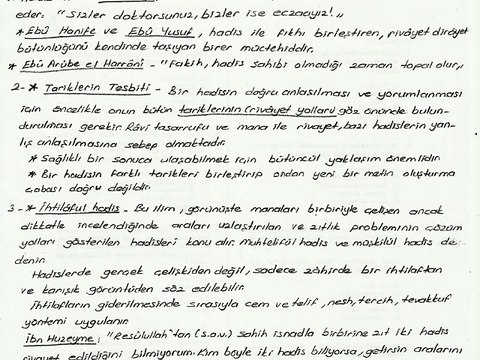 eder: "Sizler doktorsunuz, bizler ise eczacıyız!"
* Ebû Hanife ve Ebû Yusuf, hadis ile fıkhı birleştiren, rivâyet dirâyet
bütünlüğünü kendinde taşıyan birer müctehiddir.
* Ebû Arûbe el Harrânî - "Fakih, hadis sahibi olmadığı zaman topal olur"
2- * Tariklerin Tesbiti - Bir hadisin doğru anlaşılması ve yorumlanması
için öncelikle onun bütün tariklerinin (rivâyet yolları) göz önünde bulun-
durulması gerekir. Râvi tasarrufu ve mana ile rivayet, bazı hadislerin yan-
lış anlaşılmasına sebep olmaktadır.
* Sağlıklı bir sonuca ulaşabilmek için bütüncül yaklaşım önemlidir
* Bir hadisin farklı tarikleri birleştirip ondan yeni bir metin oluşturma
çabası doğru değildir.
3- * İhtilâfül hadis - Bu ilim, görünüşte manaları birbiriyle çelişen ancak
dikkatle incelendiğinde araları uzlaştırılan ve zıtlık probleminin çözüm
yolları gösterilen hadisleri konu alır. Muhtelifül hadis ve müşkilül hadis de
denir.
Hadislerde gerçek çelişkiden değil, sadece zâhirde bir ihtilaftan
ve karışık görüntüden söz edilebilir.
İhtilafların giderilmesinde sırasıyla cem ve telif, nesh, tercih, tevakkuf
yöntemi uygulanır.
İbn Huzeyme: "Resûlullah'tan (s.a.v.) sahih isnadla birbirine zıt iki hadis
rivayet edildiğini bilmiyorum. Kim böyle iki hadis biliyorsa, getirsin aralarını